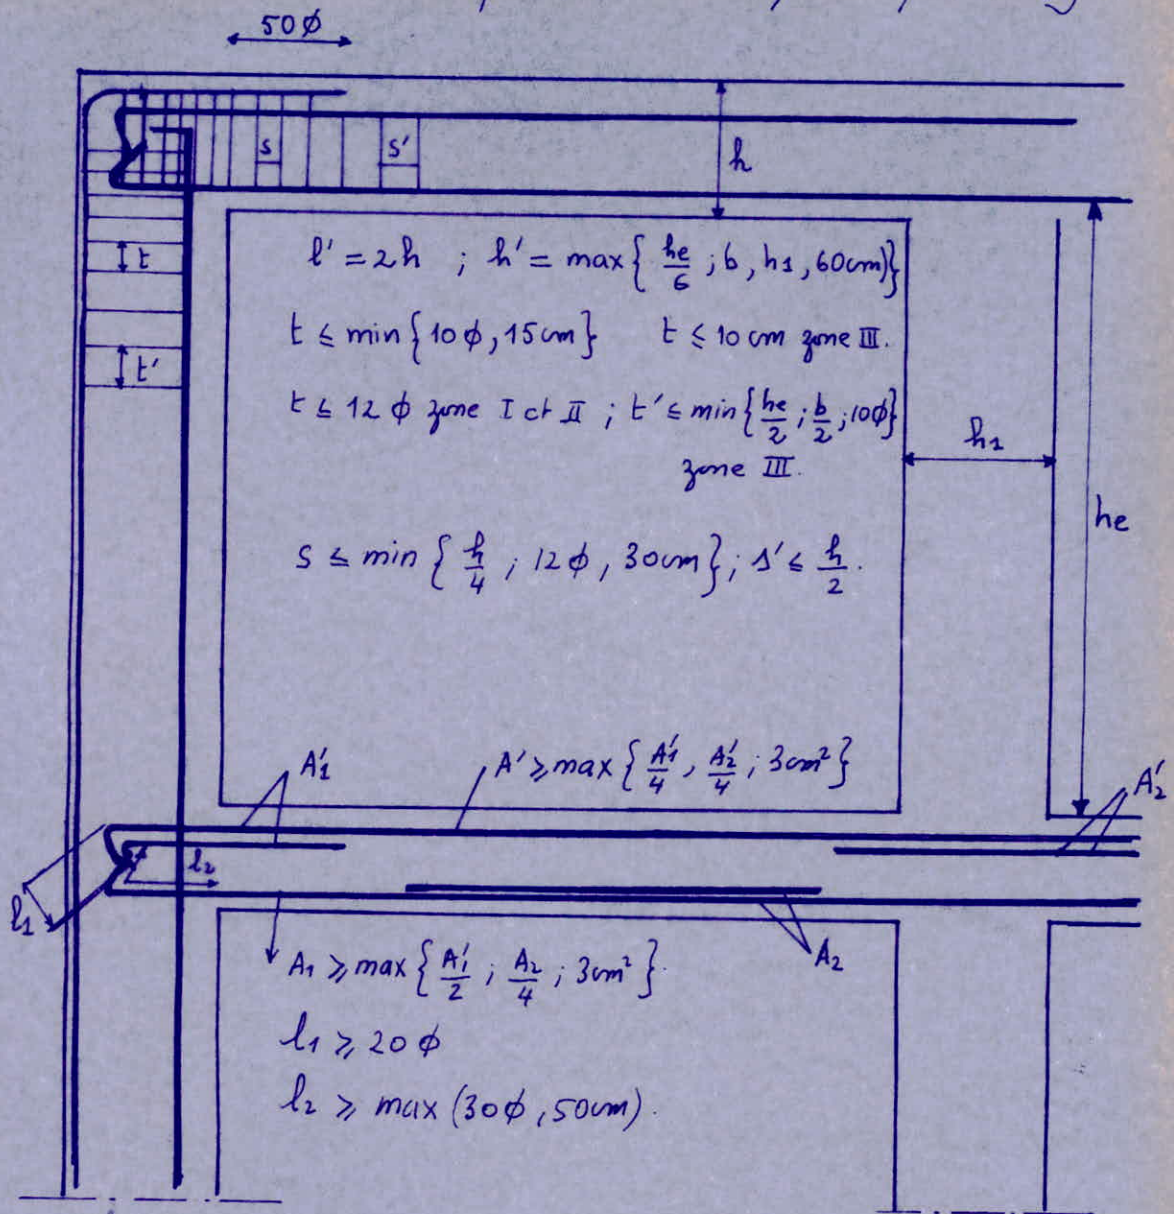 50ϕ
s s'
h
l' = 2h ; h' = max{ he/6 ; b, h1, 60cm)}
t
t ≤ min{10ϕ, 15cm} t ≤ 10 cm zone III.
t'
t ≤ 12 ϕ zone I et II ; t' ≤ min{ he/2 ; b/2 ; 10ϕ}
zone III.
h1
he
s ≤ min { h/4 ; 12ϕ, 30cm}; s' ≤ h/2.
A'1 A' ≥ max { A'1/4 , A'2/4 ; 3cm² }
A'2
l2
l1
A1 ≥ max { A'1/2 ; A2/4 ; 3cm² }.
A2
l1 ≥ 20 ϕ
l2 ≥ max (30ϕ, 50cm).